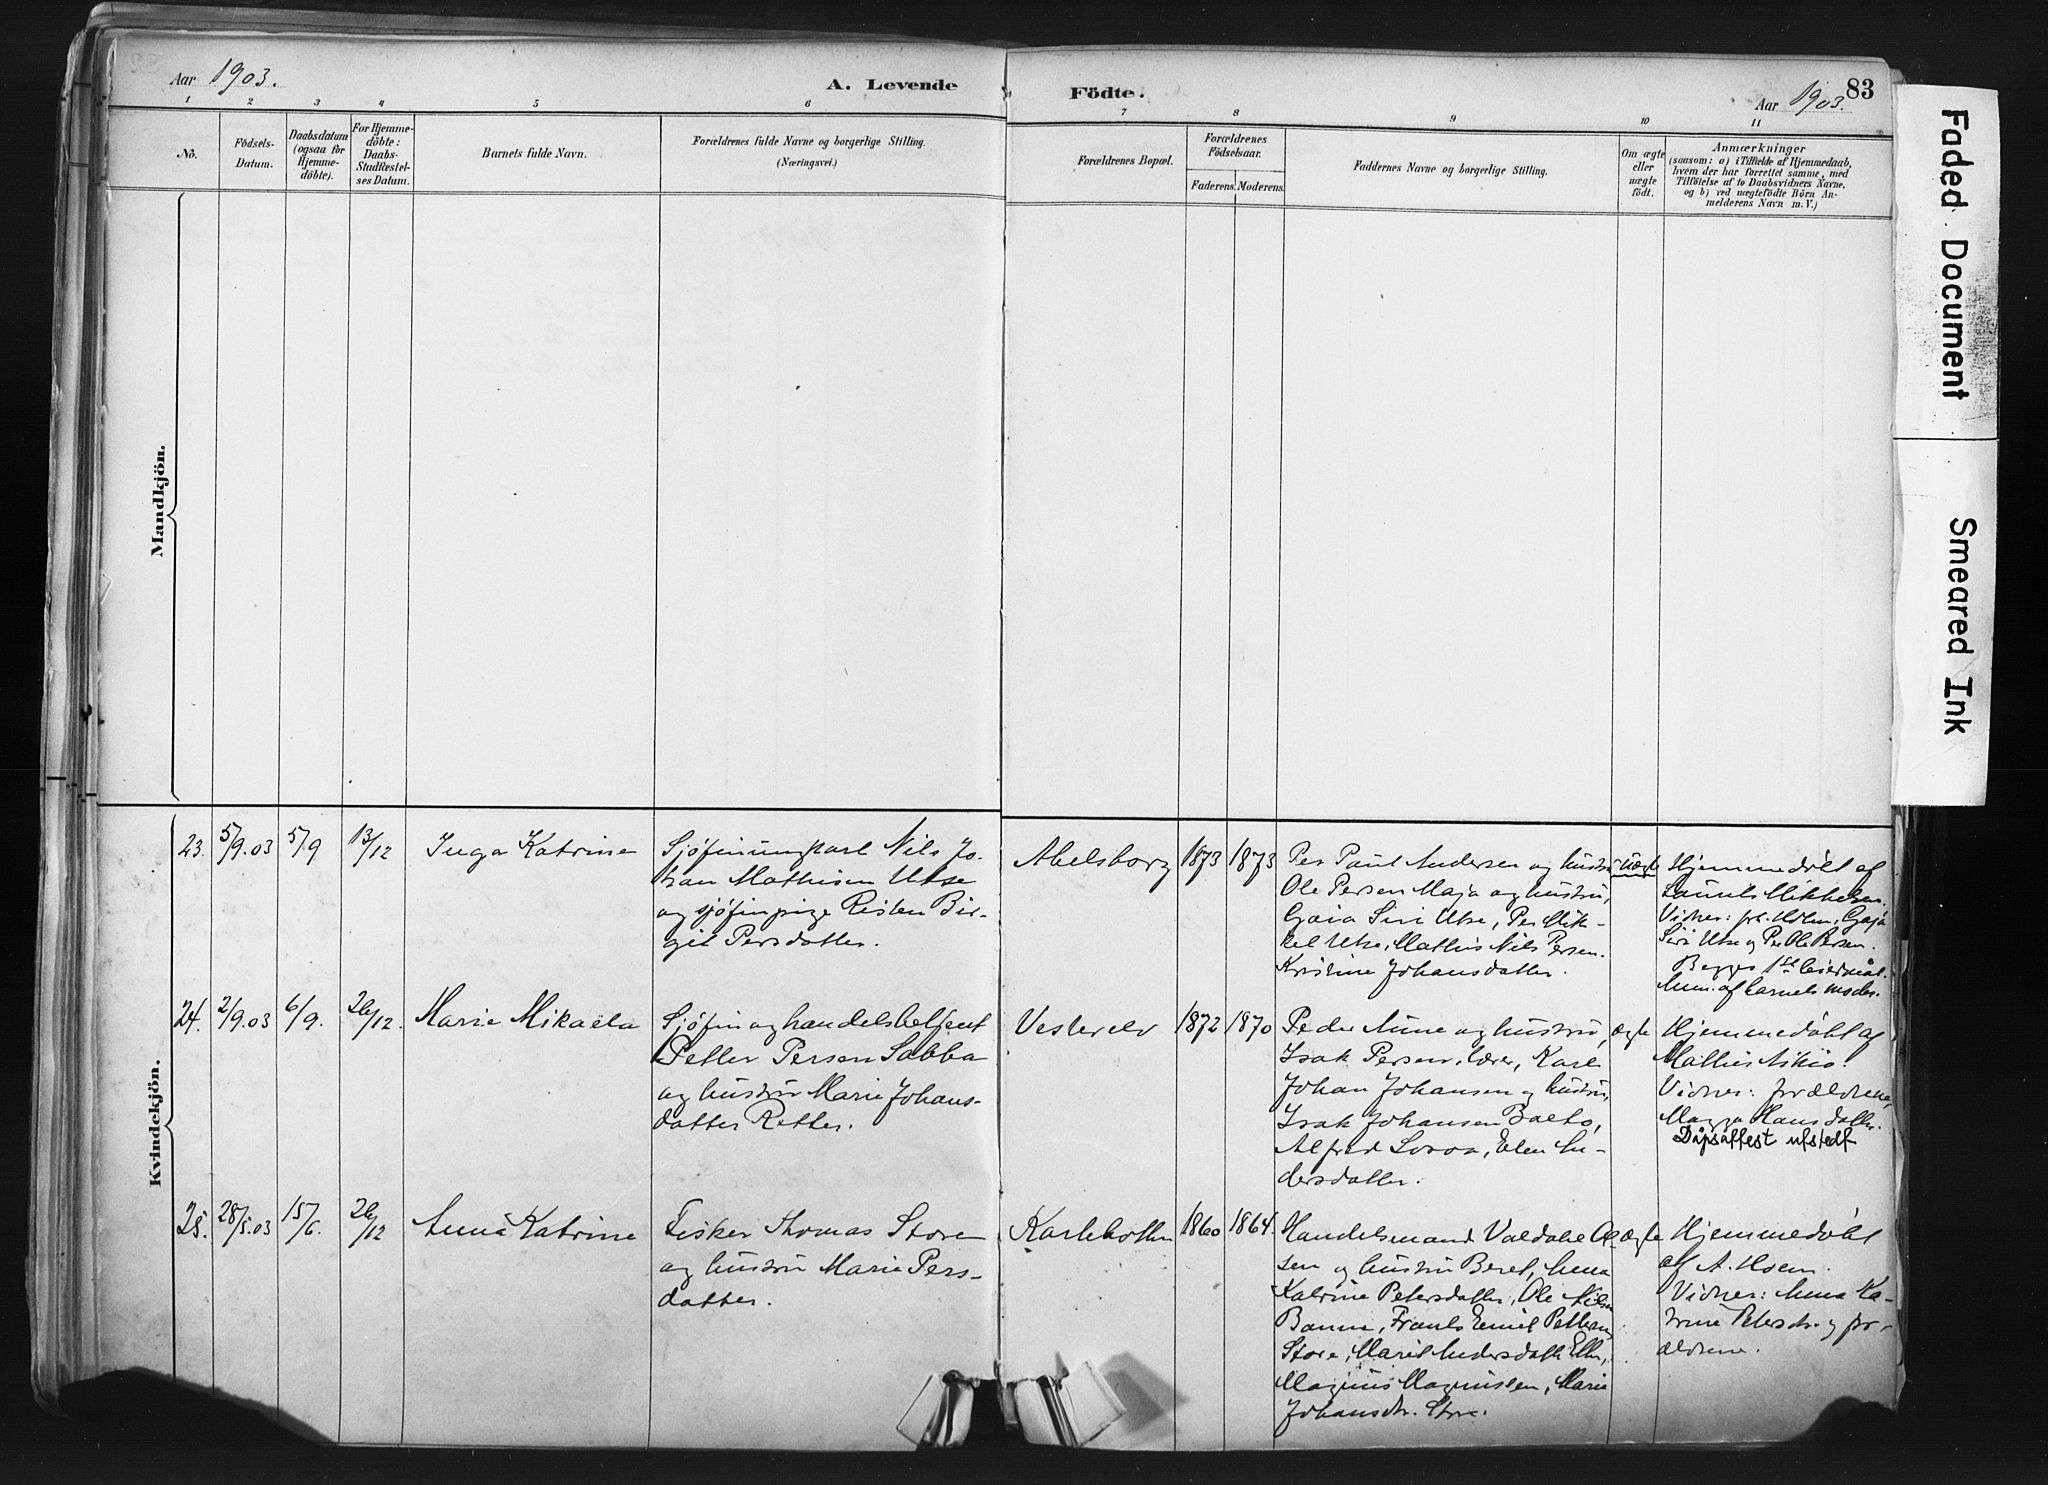 Aar 1903.
A. Levende
Födte.
Aar 1903.
83
1 2 3 4 5 6 7 8 9 10 11
No.
Födsels-
Datum.
Daabsdatum
(ogsaa for
Hjemme-
döbte).
For Hjemme-
döbte:
Daabs-
Stadfæstel-
ses Datum.
Barnets fulde Navn.
Forældrenes fulde Navne og borgerlige Stilling.
(Næringsvei.)
Forældrenes Bopæl.
Forældrenes
Födselsaar.
Faderens. Moderens.
Faddernes Navne og borgerlige Stilling.
Om ægte
eller
uægte
födt.
Anmærkninger
(saasom: a) i Tilfælde af Hjemmedaab,
hvem der har forrettet samme, med
Tilföielse af to Daabsvidners Navne.
og b) ved uægtefödte Börn An-
melderens Navn m. V.)
Mandkjön.
Kvindekjön.
23.
5/9.03
5/9
13/12
Inga Katrine
Sjöfinungkarl Nils Jo-
han Mathisen Utse
og sjöfinpige Risten Bir-
git Persdatter.
Abelsborg
1873
1873
Per Paul Andersen og hustru
Ole Persen Maja og hustru,
Gaia Siri Utse, Per Mik-
kel Utse, Mathis Nils Persen.
Kristine Johansdatter.
uægte
Hjemmedöbt af
Laurits Mikkelsen.
Vidner: frk. Holm, Gaja
Siri Utse og Per Ole Persen.
Begges 1ste leiermål.
Anm. af barnets moder.
24.
2/9.03
6/9.
26/12.
Marie Mikaela
Sjöfin og handelsbetjent
Petter Persen Sabba
og hustru Marie Johans-
datter Retter.
Vesterelv
1872
1870
Peder Aune og hustru,
Isak Persen, lærer, Karl
Johan Johansen og hustru,
Isak Johansen Balto,
Alfred Soroa, Elen An-
dersdatter.
ægte
Hjemmedöbt af
Mathis Aikio.
Vidner: forældrene,
Magga Hansdatter.
Dåpsattest utstedt
25.
28/5.03
15/6.
26/12
Anna Katrine
Fisker Thomas Store
og hustru Marie Pers-
datter.
Karlebotten
1860
1864.
Handelsmand Valdable Ol-
sen og hustru Beret, Anna
Katrine Petersdatter, Ole Nilsen
Banne, Frants Emil Petterson
Store, Marit Andersdatter
Magnus Magnussen, Marie
Johansdtr. Store.
ægte
Hjemmedöbt
af A. Hoem.
Vidner: Anna Ka-
trine Petersdtr. og for-
ældrene.
Faded Document
Smeared Ink